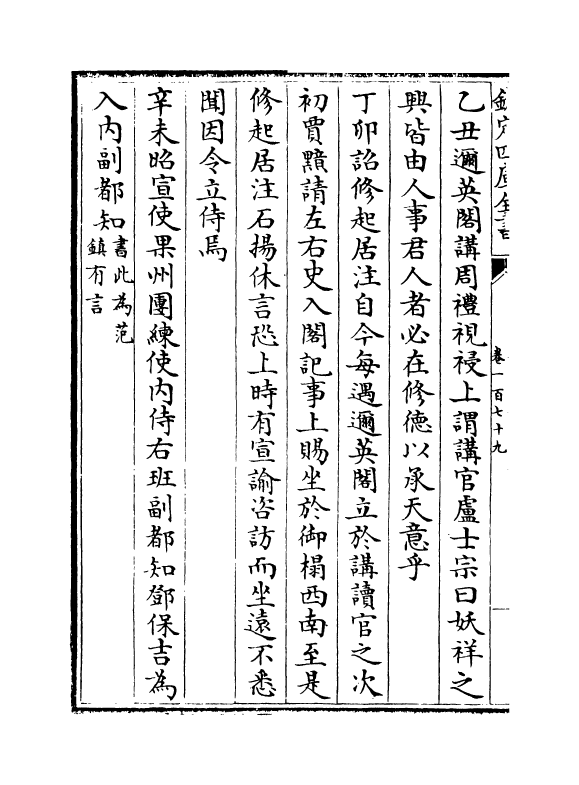 欽定四庫全書
卷一百七十九
乙丑邇英閣講周禮視祲上謂講官盧士宗曰妖祥之
興皆由人事君人者必在修德以承天意乎
丁卯詔修起居注自今每遇邇英閣立於講讀官之次
初賈黯請左右史入閣記事上賜坐於御榻西南至是
修起居注石揚休言恐上時有宣諭咨訪而坐遠不悉
聞因令立侍焉
辛未昭宣使果州團練使内侍右班副都知鄧保吉為
入内副都知書此為范
鎮有言